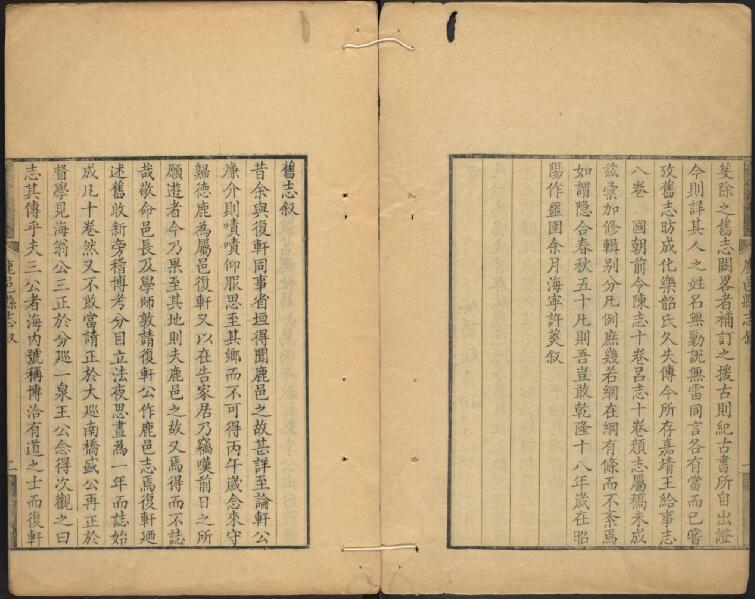 芟除之舊志闕畧者補訂之援古則紀古書所自出證
今則詳其人之姓名無勦說無雷同言各有當而已嘗
攷舊志昉成化樂韶氏久失傳今所存嘉靖王給事志
八卷　國朝前令陳志十卷呂志十卷頹志屬藁未成
茲彙加修輯別分凡例庶幾若網在綱有條而不紊焉
如謂隐合春秋五十凡則吾豈敢乾隆十八年歲在昭
陽作噩圉余月海寧許菼叙
舊志叙
昔余與復軒同事省垣得聞鹿邑之故甚詳至論軒公
廉介則嘖嘖仰服思至其鄉而不可得丙午歲念來守
歸德鹿為屬邑復軒又以在告家居乃竊嘆前日之所
願遊者今乃果至其地則夫鹿邑之故又焉得而不誌
哉敬命邑長及學師敦請復軒公作鹿邑志焉復軒廼
述舊收新旁稽博考分目立法夜思晝為一年而誌始
成凡十卷然又不敢當請正於大廵南橋盛公再正於
督學見海翁公三正於分廵一泉王公念得次觀之曰
志其傳乎夫三公者海內號稱博洽有道之士而復軒
鹿邑縣志叙